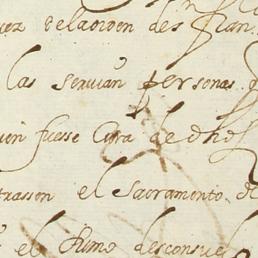 vez de la orden de S fran
las seruian personas
uien fuesse Cura de dhos
trasson el Sacramento de
el Summo desconsuel